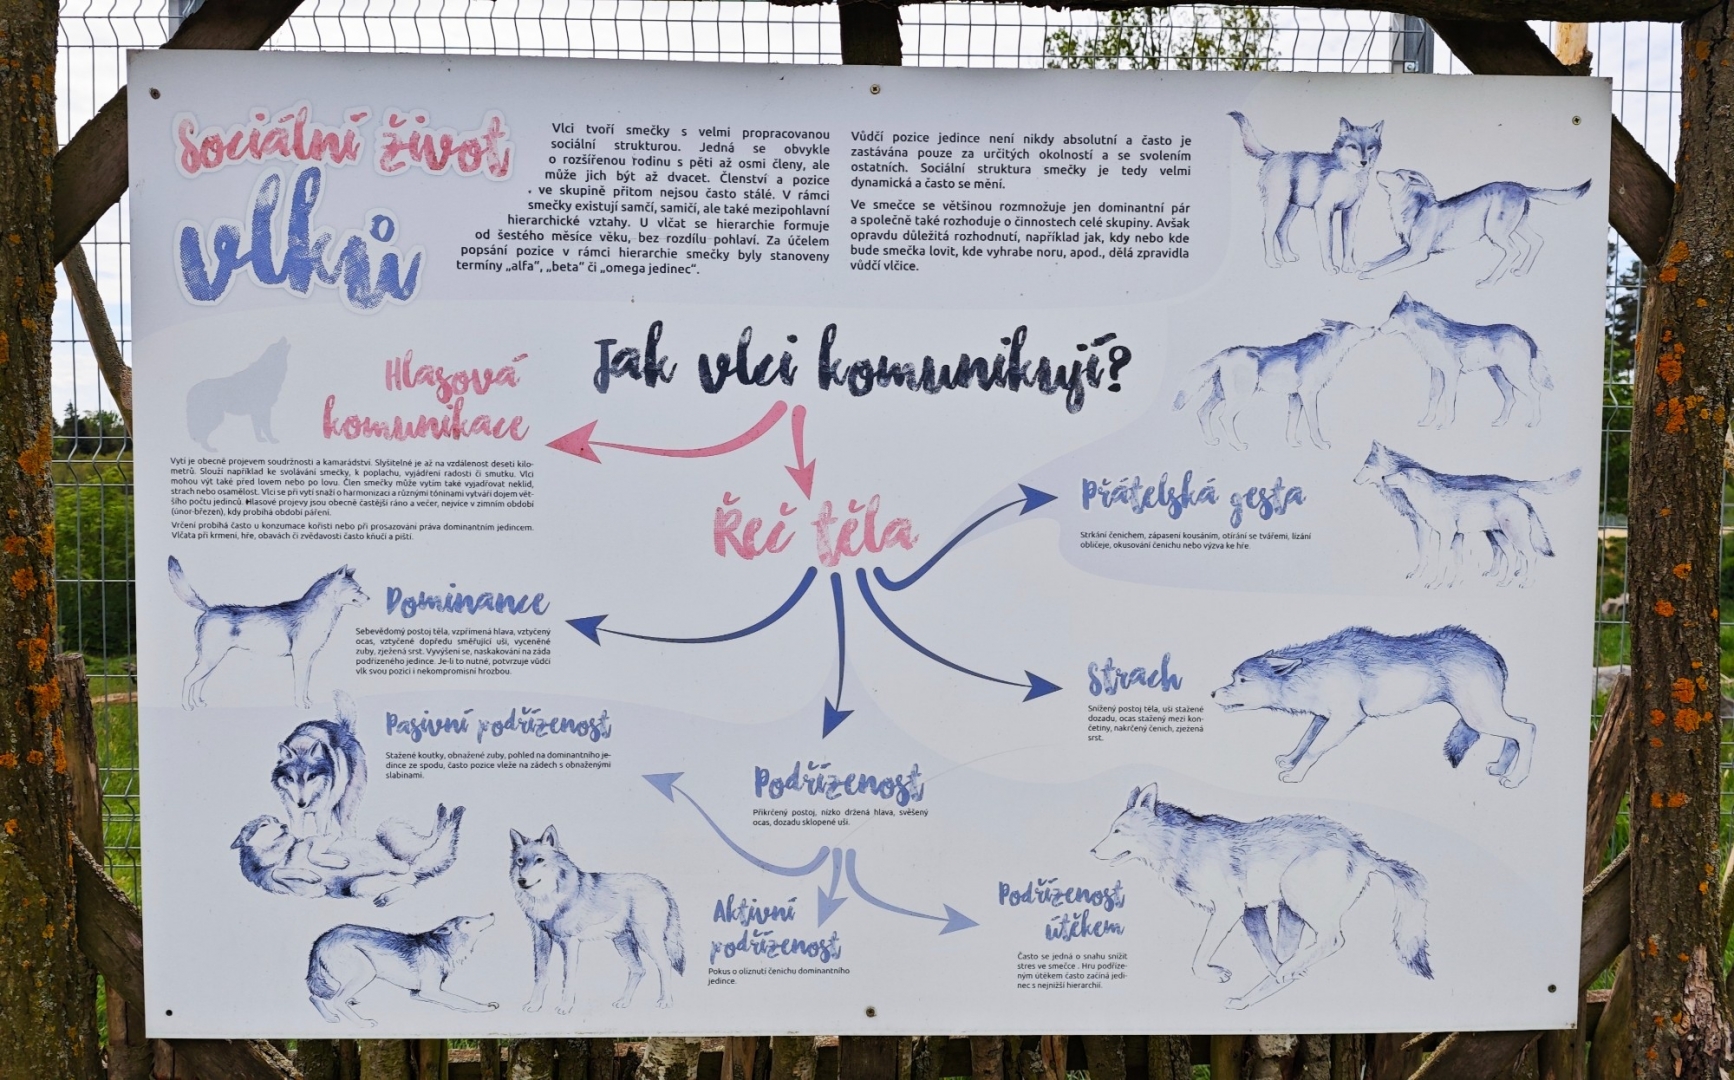 Sociální život
vlků
Vlci tvoří smečky s velmi propracovanou
sociální strukturou. Jedná se obvykle
o rozšířenou rodinu s pěti až osmi členy, ale
může jich být až dvacet. Členství a pozice
ve skupině přitom nejsou často stálé. V rámci
smečky existují samčí, samičí, ale také mezipohlavní
hierarchické vztahy. U vlčat se hierarchie formuje
od šestého měsíce věku, bez rozdílu pohlaví. Za účelem
popsání pozice v rámci hierarchie smečky byly stanoveny
termíny „alfa“, „beta“ či „omega jedinec“.
Vůdčí pozice jedince není nikdy absolutní a často je
zastávána pouze za určitých okolností a se svolením
ostatních. Sociální struktura smečky je tedy velmi
dynamická a často se mění.
Ve smečce se většinou rozmnožuje jen dominantní pár
a společně také rozhoduje o činnostech celé skupiny. Avšak
opravdu důležitá rozhodnutí, například jak, kdy nebo kde
bude smečka lovit, kde vyhrabe noru, apod., dělá zpravidla
vůdčí vlčice.
Jak vlci komunikují?
Hlasová
komunikace
Vytí je obecně projevem soudržnosti a kamarádství. Slyšitelné je až na vzdálenost deseti kilo-
metrů. Slouží například ke svolávání smečky, k poplachu, vyjádření radosti či smutku. Vlci
mohou výt také před lovem nebo po lovu. Člen smečky může vytím také vyjadřovat neklid,
strach nebo osamělost. Vlci se při vytí snaží o harmonizaci a různými tóninami vytváří dojem vět-
šího počtu jedinců. Hlasové projevy jsou obecně častější ráno a večer, nejvíce v zimním období
(únor-březen), kdy probíhá období páření.
Vrčení probíhá často u konzumace kořisti nebo při prosazování práva dominantním jedincem.
Vlčata při krmení, hře, obavách či zvědavosti často kňučí a piští.
Řeč těla
Přátelská gesta
Strkání čenichem, zápasení kousáním, otírání se tvářemi, lízání
obličeje, okusování čenichu nebo výzva ke hře.
Dominance
Sebevědomý postoj těla, vzpřímená hlava, vztyčený
ocas, vztyčené dopředu směřující uši, vyceněné
zuby, zježená srst. Vyvýšení se, naskakování na záda
podřízeného jedince. Je-li to nutné, potvrzuje vůdčí
vlk svou pozici i nekompromisní hrozbou.
Strach
Snížený postoj těla, uši stažené
dozadu, ocas stažený mezi kon-
četiny, nakrčený čenich, zježená
srst.
Pasivní podřízenost
Stažené koutky, obnažené zuby, pohled na dominantního je-
dince ze spodu, často pozice vleže na zádech s obnaženými
slabinami.
Podřízenost
Přikrčený postoj, nízko držená hlava, svěšený
ocas, dozadu sklopené uši.
Aktivní
podřízenost
Pokus o olíznutí čenichu dominantního
jedince.
Podřízenost
útěkem
Často se jedná o snahu snížit
stres ve smečce . Hru podříze-
ným útěkem často začíná jedi-
nec s nejnižší hierarchií.